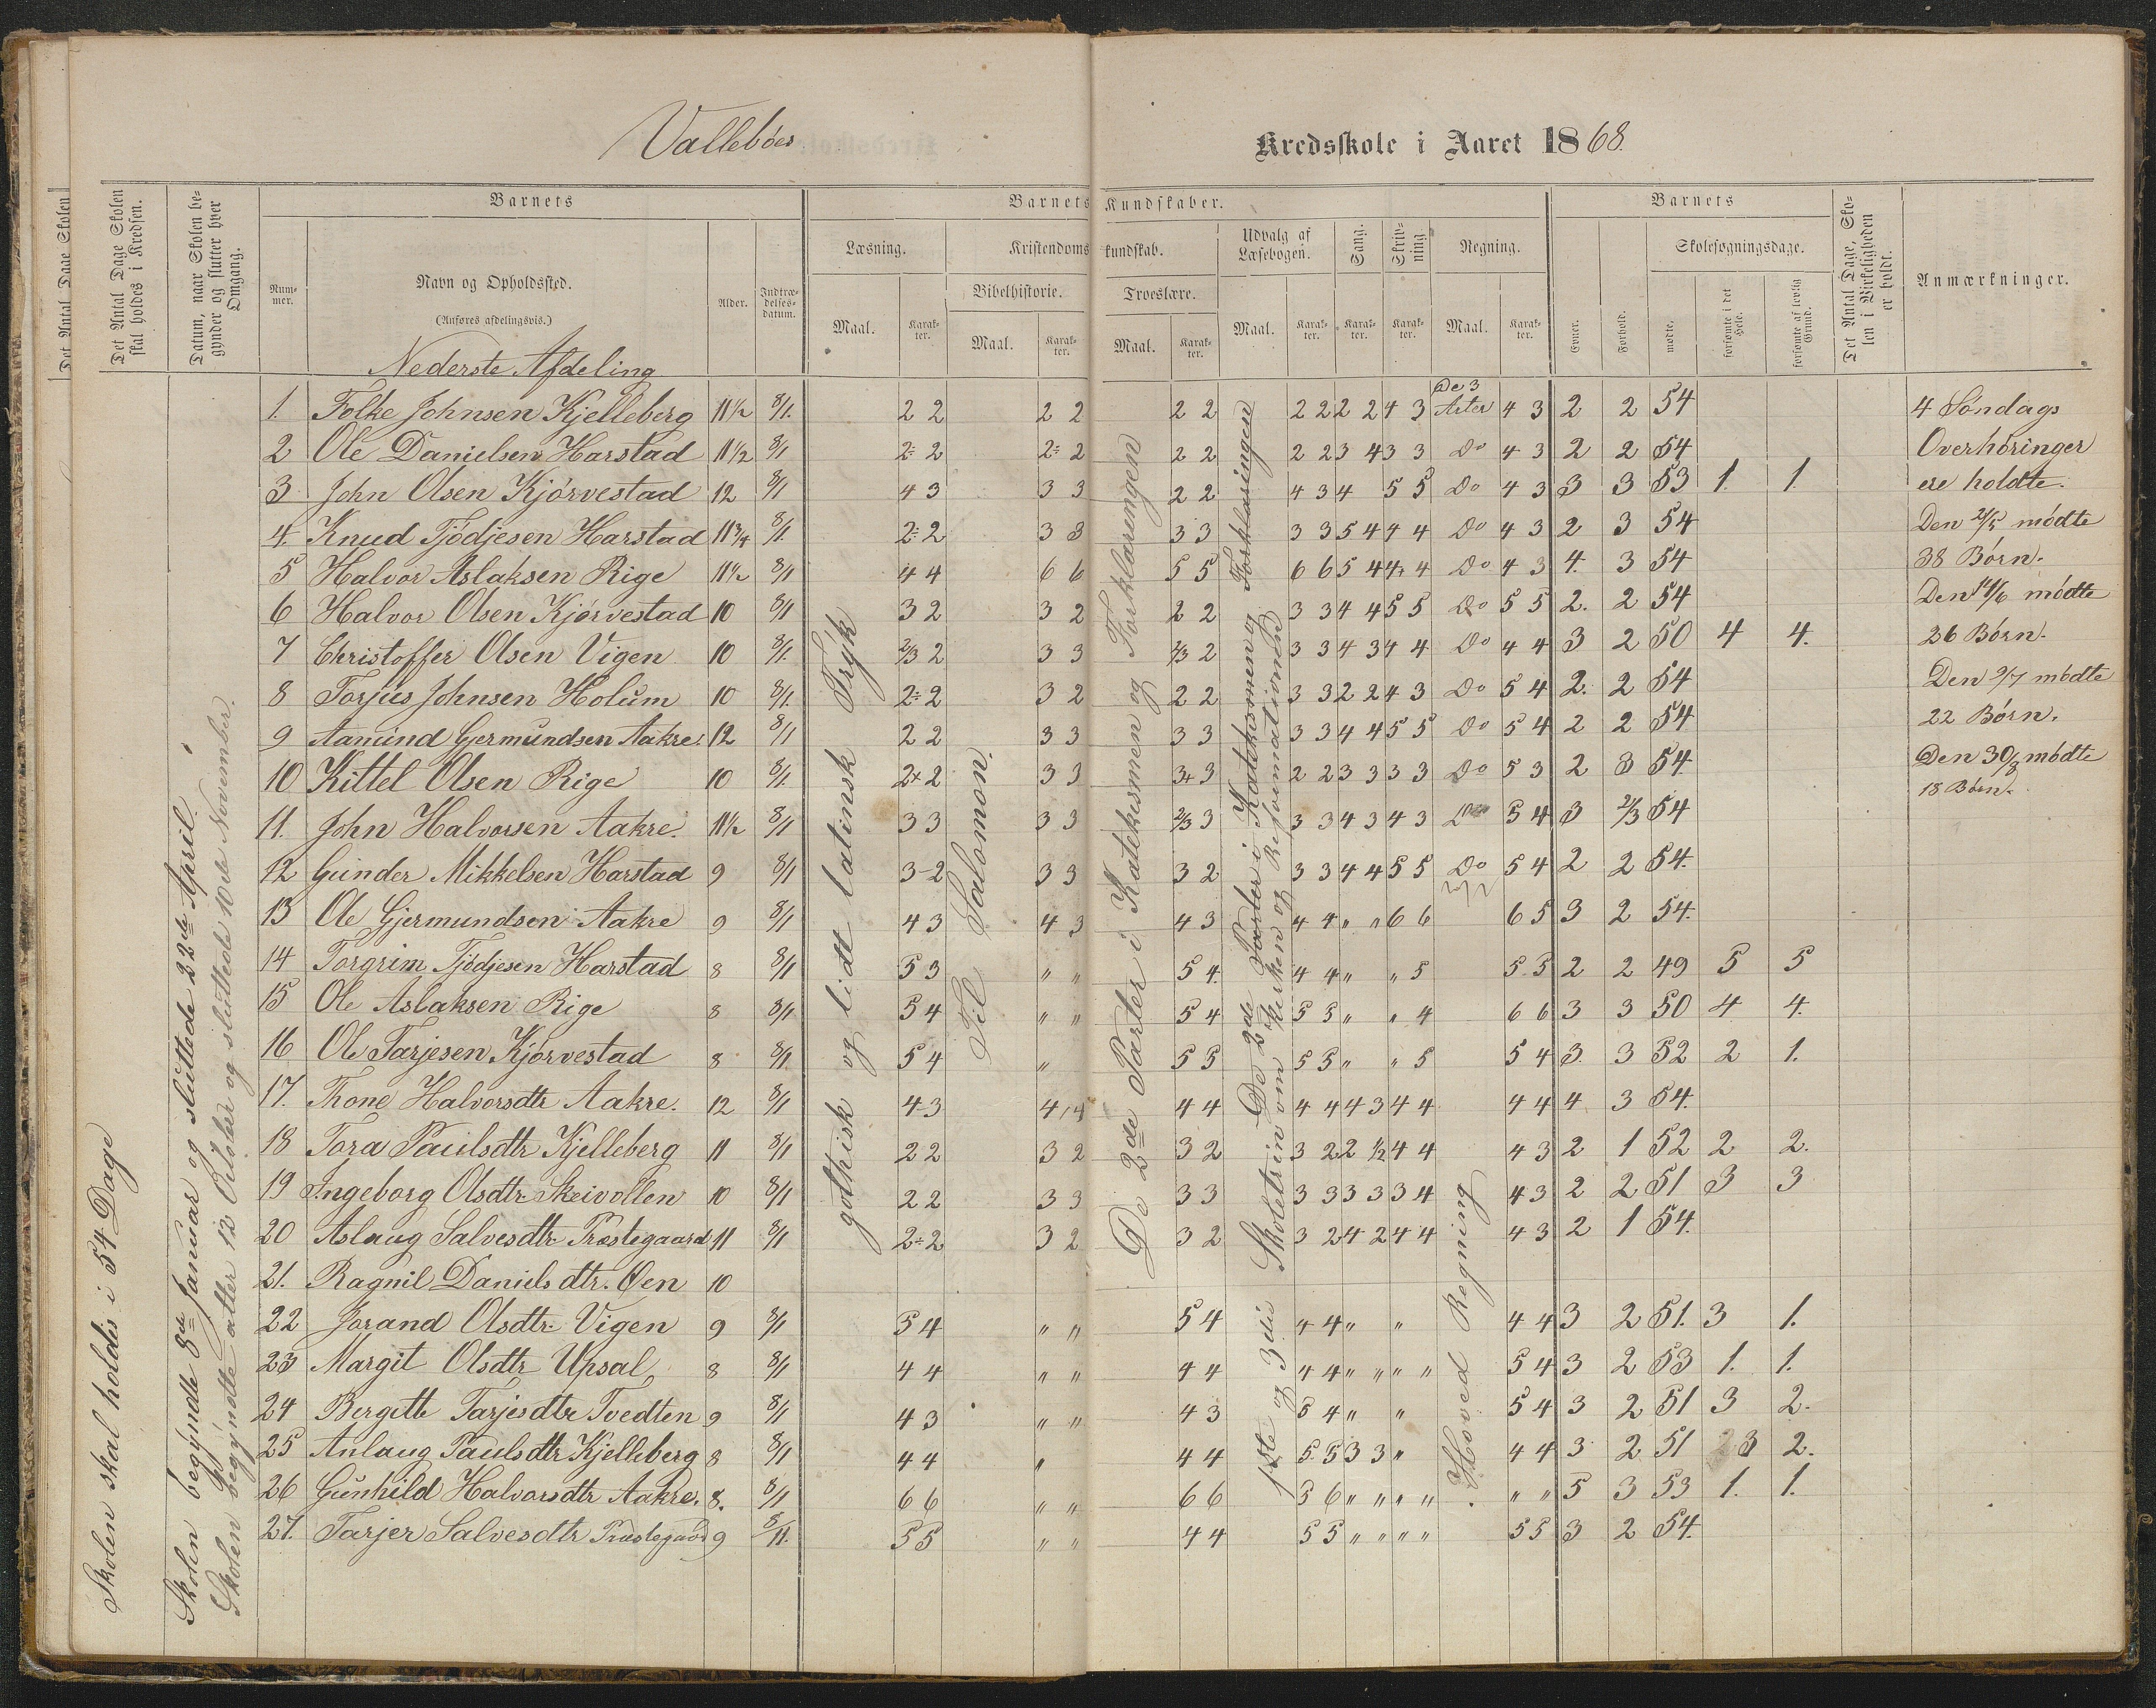 Vallebøes
Kredsskole i Aaret 1868.
Det Antal Dage Skolen
Det Antal Dage Skolen skal holdes i Kredsen.
Datum, naar Skolen begynder og slutter hver Omgang.
Barnets
Barnets Kundskaber.
Barnets
Det Antal Dage, Skolen i Virkeligheden er holdt.
Anmærkninger.
Nummer.
Navn og Opholdssted.
(Anføres afdelingsvis.)
Alder.
Indtrædelsesdatum.
Læsning.
Kristendomskundskab.
Udvalg af Læsebogen.
Sang.
Skrivning
Regning.
Evner.
Forhold.
Skolesøgningsdage.
Bibelhistorie.
Troeslære.
Maal.
Karakter.
Maal.
Karakter.
Maal.
Karakter.
Maal.
Karakter.
Karakter.
Karakter.
Maal.
Karakter.
mødte.
forsømte i det Hele.
forsømte af lovlig Grund.
Nederste Afdeling
Skolen skal holdes i 54 Dage
Skolen begyndte 8de Januar og sluttede 22de April.
Skolen begyndte atter 12 Octbler og sluttede 10de November.
gothisk og lidt latinsk Trÿk
Til Salomon.
De 2de Parter i Katekismen og Forklaringen
De 2de Parter i Katekismen og Forklaringen
1ste og 3die Skoletrin om Kirken og Reformationen
Hoved Regning
1. Folke Johnsen Kjelleberg 11½ 8/1. 2 2 2 2 2 2 2 2 2 2 4 3 De 3 Arter 4 3 2 2 54
2 Ole Danielsen Harstad 11½ 8/1 2÷ 2 2÷ 2 2 2 2 2 3 4 3 3 Do 4 3 2 2 54
3 John Olsen Kjørvestad 12 8/1 4 3 3 3 2 2 4 3 4 5 5 Do 4 3 3 3 53 1. 1.
4. Knud Tjödjesen Harstad 11¾ 8/1. 2÷ 2 3 3 3 3 3 3 5 4 4 4 Do 4 3 2 3 54
5 Halvor Aslaksen Rige 11½ 8/1 4 4 6 6 5 5 6 6 5 4 4 4 Do 4 3 4. 3 54
6 Halvor Olsen Kjørvestad 10 8/1 3 2 3 2 2 2 3 3 4 4 5 5 Do 5 5 2. 2 54
7 Christoffer Olsen Vigen 10 8/1. 2/3 2 3 3 2/3 2 3 3 4 3 4 4 Do 4 4 3 2 50 4 4.
8 Torjus Johnsen Holum 10 8/1. 2÷ 2 3 2 2 2 3 3 2 2 4 3 Do 5 4 2. 2 54
9 Aamund Gjermundsen Aakre. 12 8/1 2 2 3 3 3 3 3 3 4 4 5 5 Do 5 4 2 2 54
10 Kittel Olsen Rige 10 8/1. 2+ 2 3 3 3+ 3 2 2 3 3 3 3 Do 5 3 2 3 54.
11. John Halvorsen Aakre. 11½ 8/1 3 3 3 3 2/3 3 3 3 4 3 4 3 Do 5 4 3 2/3 54
12 Gunder Mikkelsen Harstad 9 8/1 3-2 3 3 3 2 3 3 4 4 5 5 Do 5 4 2 2 54.
13 Ole Gjermundsen Aakre 9 8/1 4 3 4 3 4 3 4 4 " " 6 6 6 5 3 2 54.
14 Torgrim Tjödjesen Harstad 8 8/1 5 3 " " 5 4. 4 4 " " 5 5 5 2 2 49 5 5
15 Ole Aslaksen Rige 8 8/1 5 4 " " 5 4 5 5 " " 4 6 6 3 3 50 4 4.
16 Ole Tarjesen Kjørvestad 8 8/1. 5 4 " 5 5 5 5 " " 5 5 4 3 3 52 2 1.
17. Thone Halvorsdtr Aakre. 12 8/1 4 3 4 4 4 4 4 4 4 3 4 4 4 4 4 3 54.
18 Tora Paulsdtr Kjelleberg 11 8/1 2 2 3 2 3 2 3 2 2 ½ 4 4 4 3 2 1 52 2 2.
19 Ingeborg Olsdtr Skeivollen 10 8/1 2 2 3 3 3 3 3 3 3 3 3 4 4 3 2 2 51 3 3
20 Aslaug Salvesdtr Præstegaard 11 8/1 2÷2 3 2 3 2 3 2 4 2 4 4 4 3 2 1 54.
21. Ragnil Daniels dtr. Øen 10
22 Jorand Olsdtr Vigen 9 8/1 5 4 " " 5 4 4 4 " " 4 4 3 2 51. 3 1.
23 Margit Olsdtr Upsal 8 8/1 4 4 " " 4 4 4 4 " " " " 5 4 3 2 53 1. 1.
24 Bergitte Tarjesdtr Tvedten 9 8/1 4 3 " " 4 3 5 4 " " 5 4 3 2 51 3 2.
25 Anlaug Paulsdtr Kjelleberg 8 8/1 4 4 " 4 4 5 5 3 3 " 4 4 3 2 51 3 2.
26 Gunhild Halvorsdtr Aakre. 8. 8/1 6 6 " " 6 6 5 6 " " " " " " 5 3 53 1. 1.
27. Tarjer Salvesdtr Præstegaard 9 8/11. 5 5 " " 4 4 5 5 " " " " 5 5 3 2 54.
4 Søndags
Overhøringer
ere holdte.
Den 21/5 mødte
38 Børn.
Den 14/6 mødte
26 Børn.
Den 9/7 mødte
22 Børn.
Den 30/8 mødte
18 Børn.